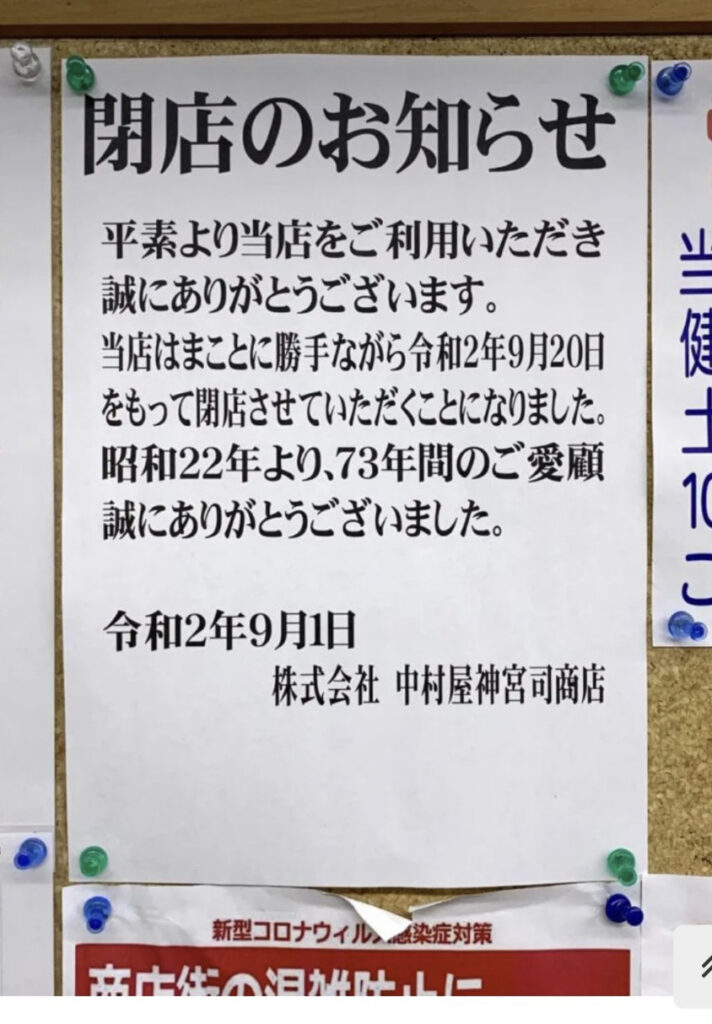 閉店のお知らせ
平素より当店をご利用いただき
誠にありがとうございます。
当店はまことに勝手ながら令和2年9月20日
をもって閉店させていただくことになりました。
昭和22年より、73年間のご愛顧
誠にありがとうございました。
令和2年9月1日
株式会社 中村屋神宮司商店
新型コロナウィルス感染症対策
商店街の混雑防止に
当
健
土
10
こ